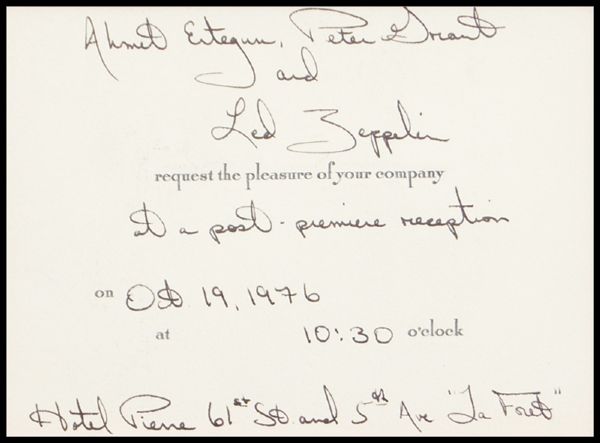 Ahmet Ertegun, Peter Grant
and
Led Zeppelin
request the pleasure of your company
at a post-premiere reception
on Oct 19, 1976
at 10:30 o'clock
Hotel Pierre 61st St and 5th Ave "La Foret"